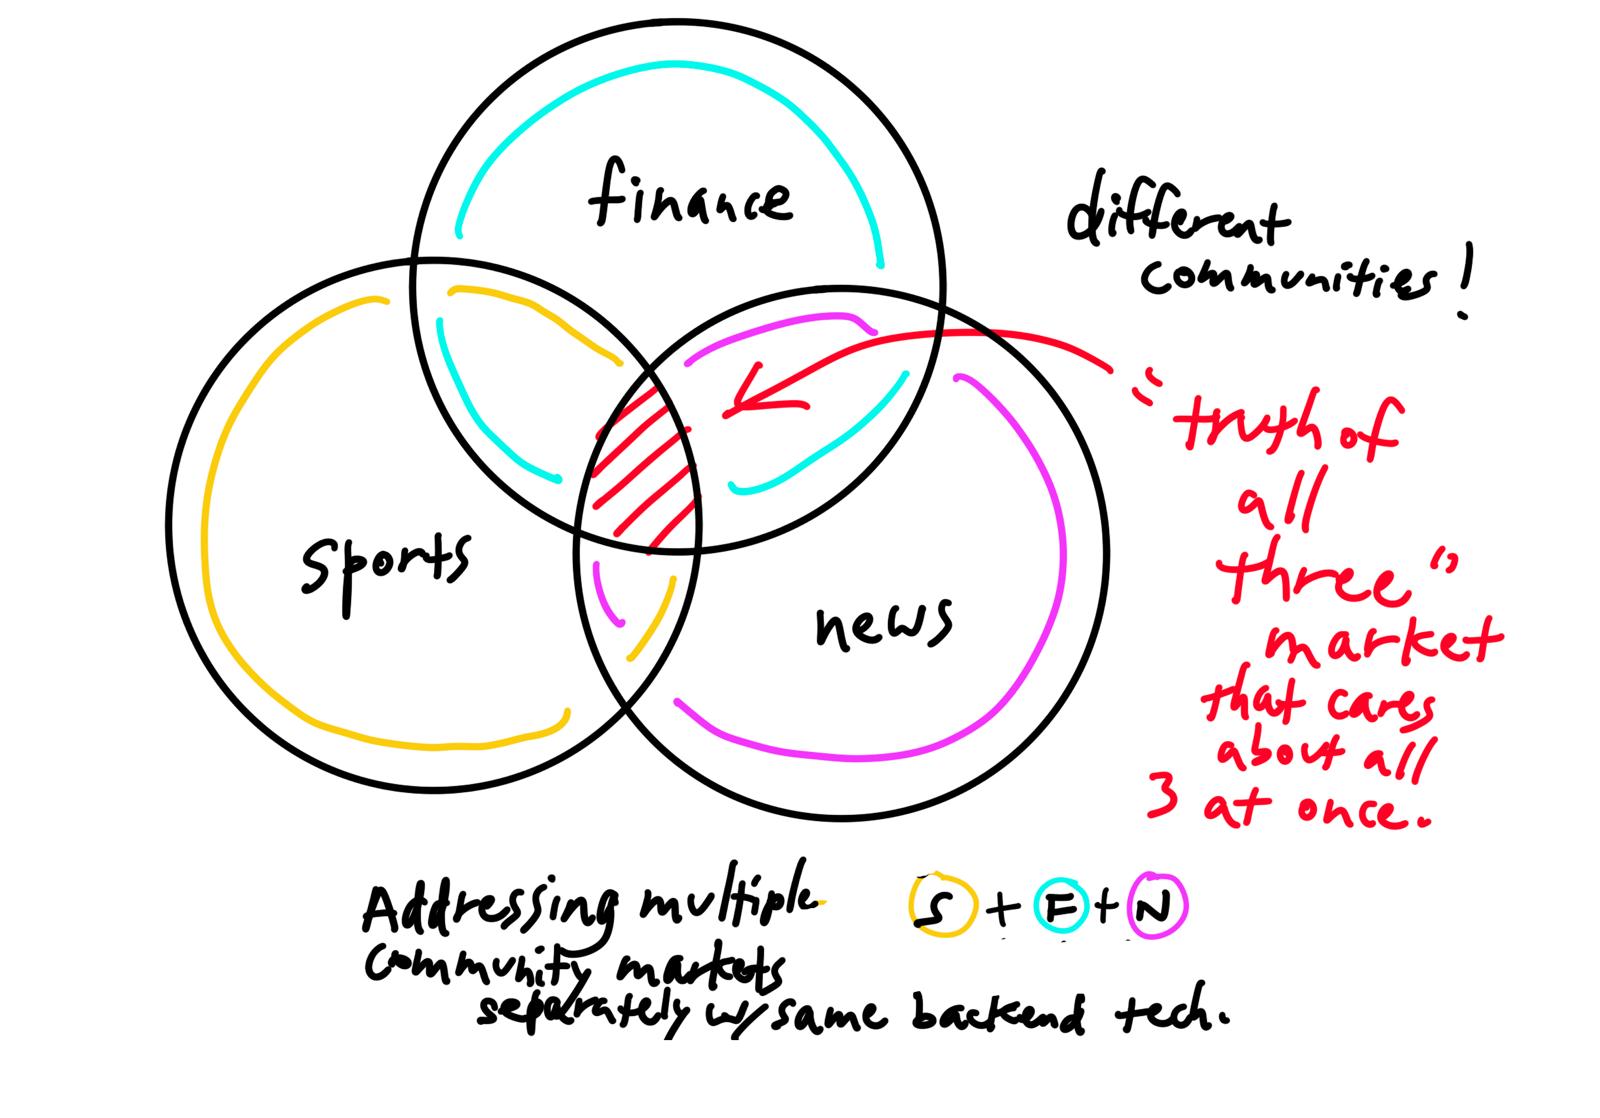 finance
different
communities!
"truth of
all
three"
market
that cares
about all
3 at once.
sports
news
Addressing multiple
community markets
separately w/ same backend tech.
S + F + N